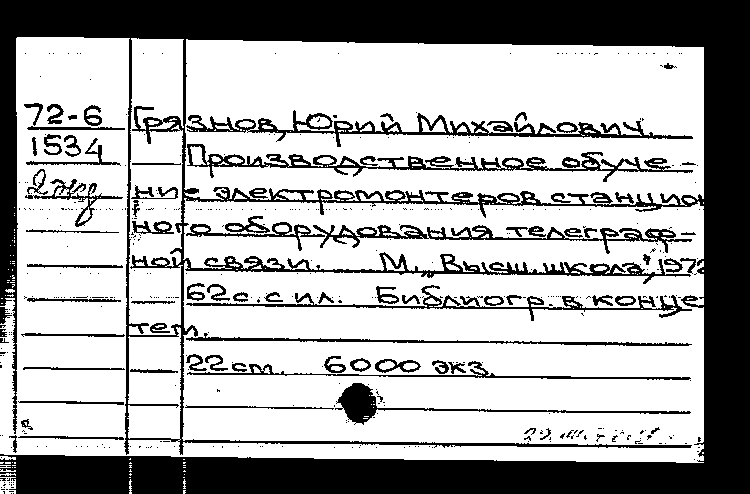 72-6 Грязнов, Юрий Михайлович.
1534 Производственное обуче-
2 экз ние электромонтеров станцион
ного оборудования телеграф-
ной связи. М., "Высш. школа", 1972
62 с. с ил. Библиогр. в конце
тет.
22 см. 6000 экз.